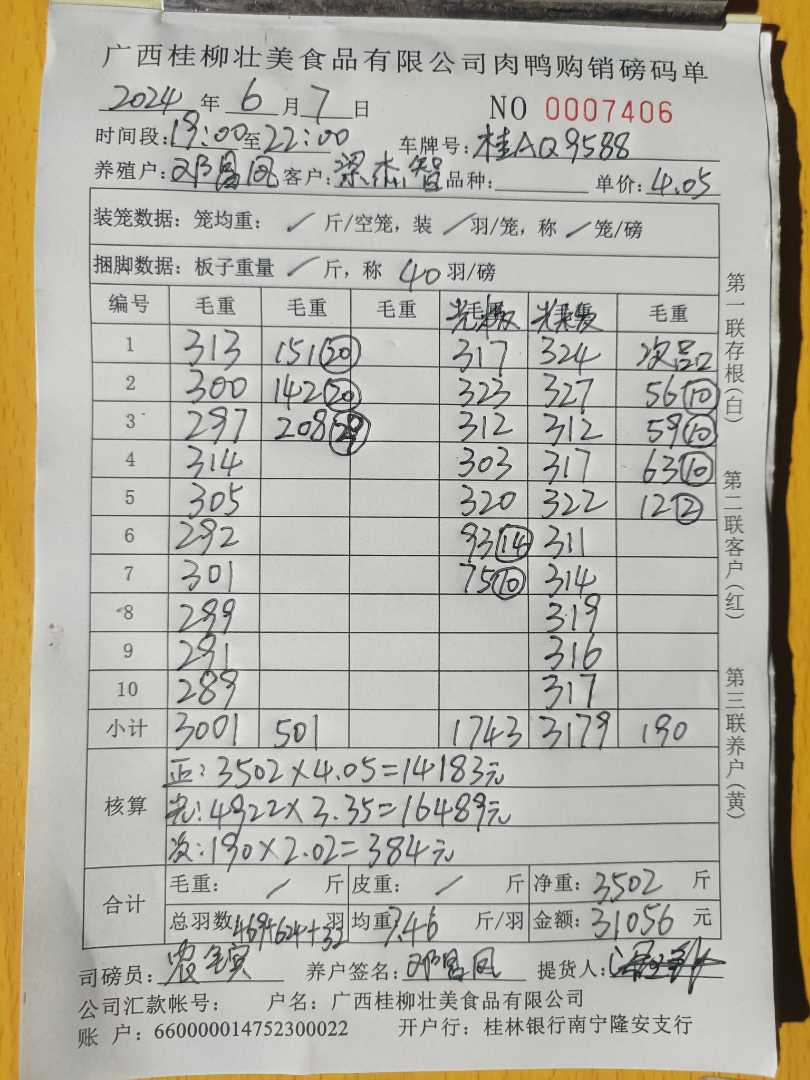 广西桂柳壮美食品有限公司肉鸭购销磅码单
2024 年 6 月 7 日 NO 0007406
时间段: 19:00 至 22:00 车牌号: 桂AQ9588
养殖户: 邓昌凤 客户: 梁杰智 品种: 单价: 4.05
装笼数据: 笼均重: / 斤/空笼, 装 / 羽/笼, 称 / 笼/磅
捆脚数据: 板子重量 / 斤, 称 40 羽/磅
编号 毛重 毛重 毛重 毛重
1 313 151 20 317 324 次品
2 300 142 20 323 327 56 10
3 297 208 29 312 312 59 10
4 314 303 317 63 10
5 305 320 322 12 2
6 292 93 14 311
7 301 75 10 314
8 299 319
9 291 316
10 289 317
小计 3001 501 1743 3179 190
核算
正: 3502×4.05=14183元
光: 4922×3.35=16489元
次: 190×2.02=384元
合计
毛重: / 斤 皮重: / 斤 净重: 3502 斤
总羽数 469+624+32 羽 均重 7.46 斤/羽 金额: 31056 元
司磅员: 养户签名: 邓昌凤 提货人:
公司汇款帐号: 户名: 广西桂柳壮美食品有限公司
账 户: 660000014752300022 开户行: 桂林银行南宁隆安支行
第一联存根(白)
第二联客户(红)
第三联养户(黄)